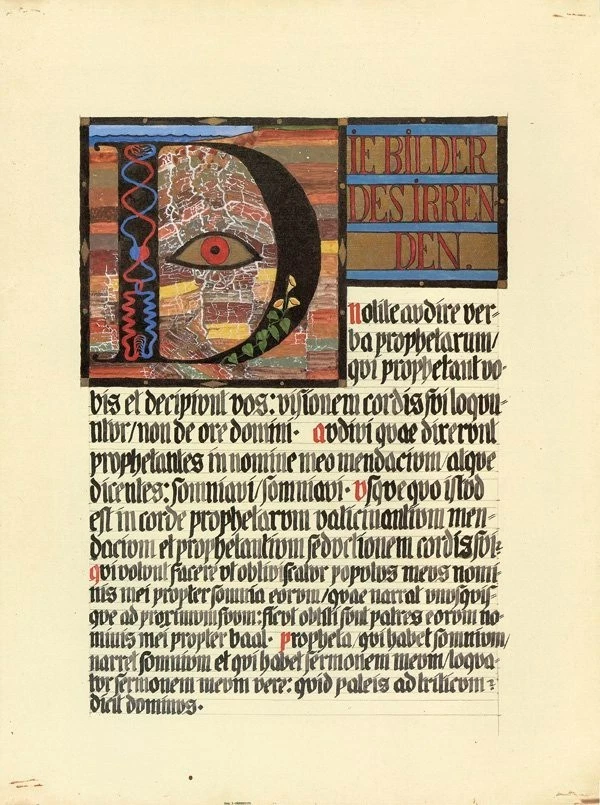 DIE BILDER
DES IRREN
DEN.
nolite avdire ver=
ba prophetarum/
qvi prophetant vo=
bis et decipivnt vos: visionem cordis svi loqvu=
ntvr/non de ore domini. avdivi qvae dixervnt
prophetantes in nomine meo mendacivm/atqve
dicentes: somniavi/somniavi. vsqve qvo istvd
est in corde prophetarvm vaticinantivm men=
dacivm et prophetantivm sedvctionem cordis svi?
qvi volvnt facere vt obliviscatvr popvlvs mevs nomi=
nis mei propter somnia eorvm/qvae narrat vnvsqvis=
qve ad proximvm svvm: sicvt obliti svnt patres eorvm no=
minis mei propter baal. propheta/qvi habet somnivm/
narret somnivm et qvi habet sermonem mevm/loqva=
tvr sermonem mevm vere: qvid paleis ad triticvm?
dicit dominvs.